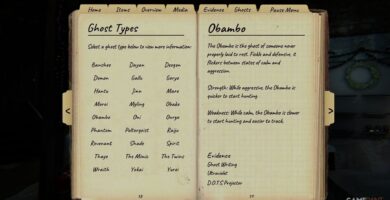 Home Items Overview Media Evidence Ghosts Pause Menu
Ghost Types
Select a ghost type below to view more information:
Banshee Dayan Deogen
Demon Gallu Goryo
Hantu Jinn Mare
Moroi Myling Obake
Obambo Oni Onryo
Phantom Poltergeist Raiju
Revenant Shade Spirit
Thaye The Mimic The Twins
Wraith Yokai Yurei
Obambo
The Obambo is the ghost of someone never
properly laid to rest. Fickle and defensive, it
flickers between states of calm and
aggression.
Strength: While aggressive, the Obambo is
quicker to start hunting.
Weakness: While calm, the Obambo is slower
to start hunting and easier to track.
Evidence
Ghost Writing
Ultraviolet
D.O.T.S Projector